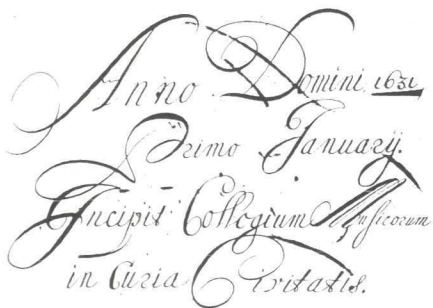 Anno Domini 1631
Primo Januarÿ.
Incipit Collegium Musicorum
in Curia Civitatis.